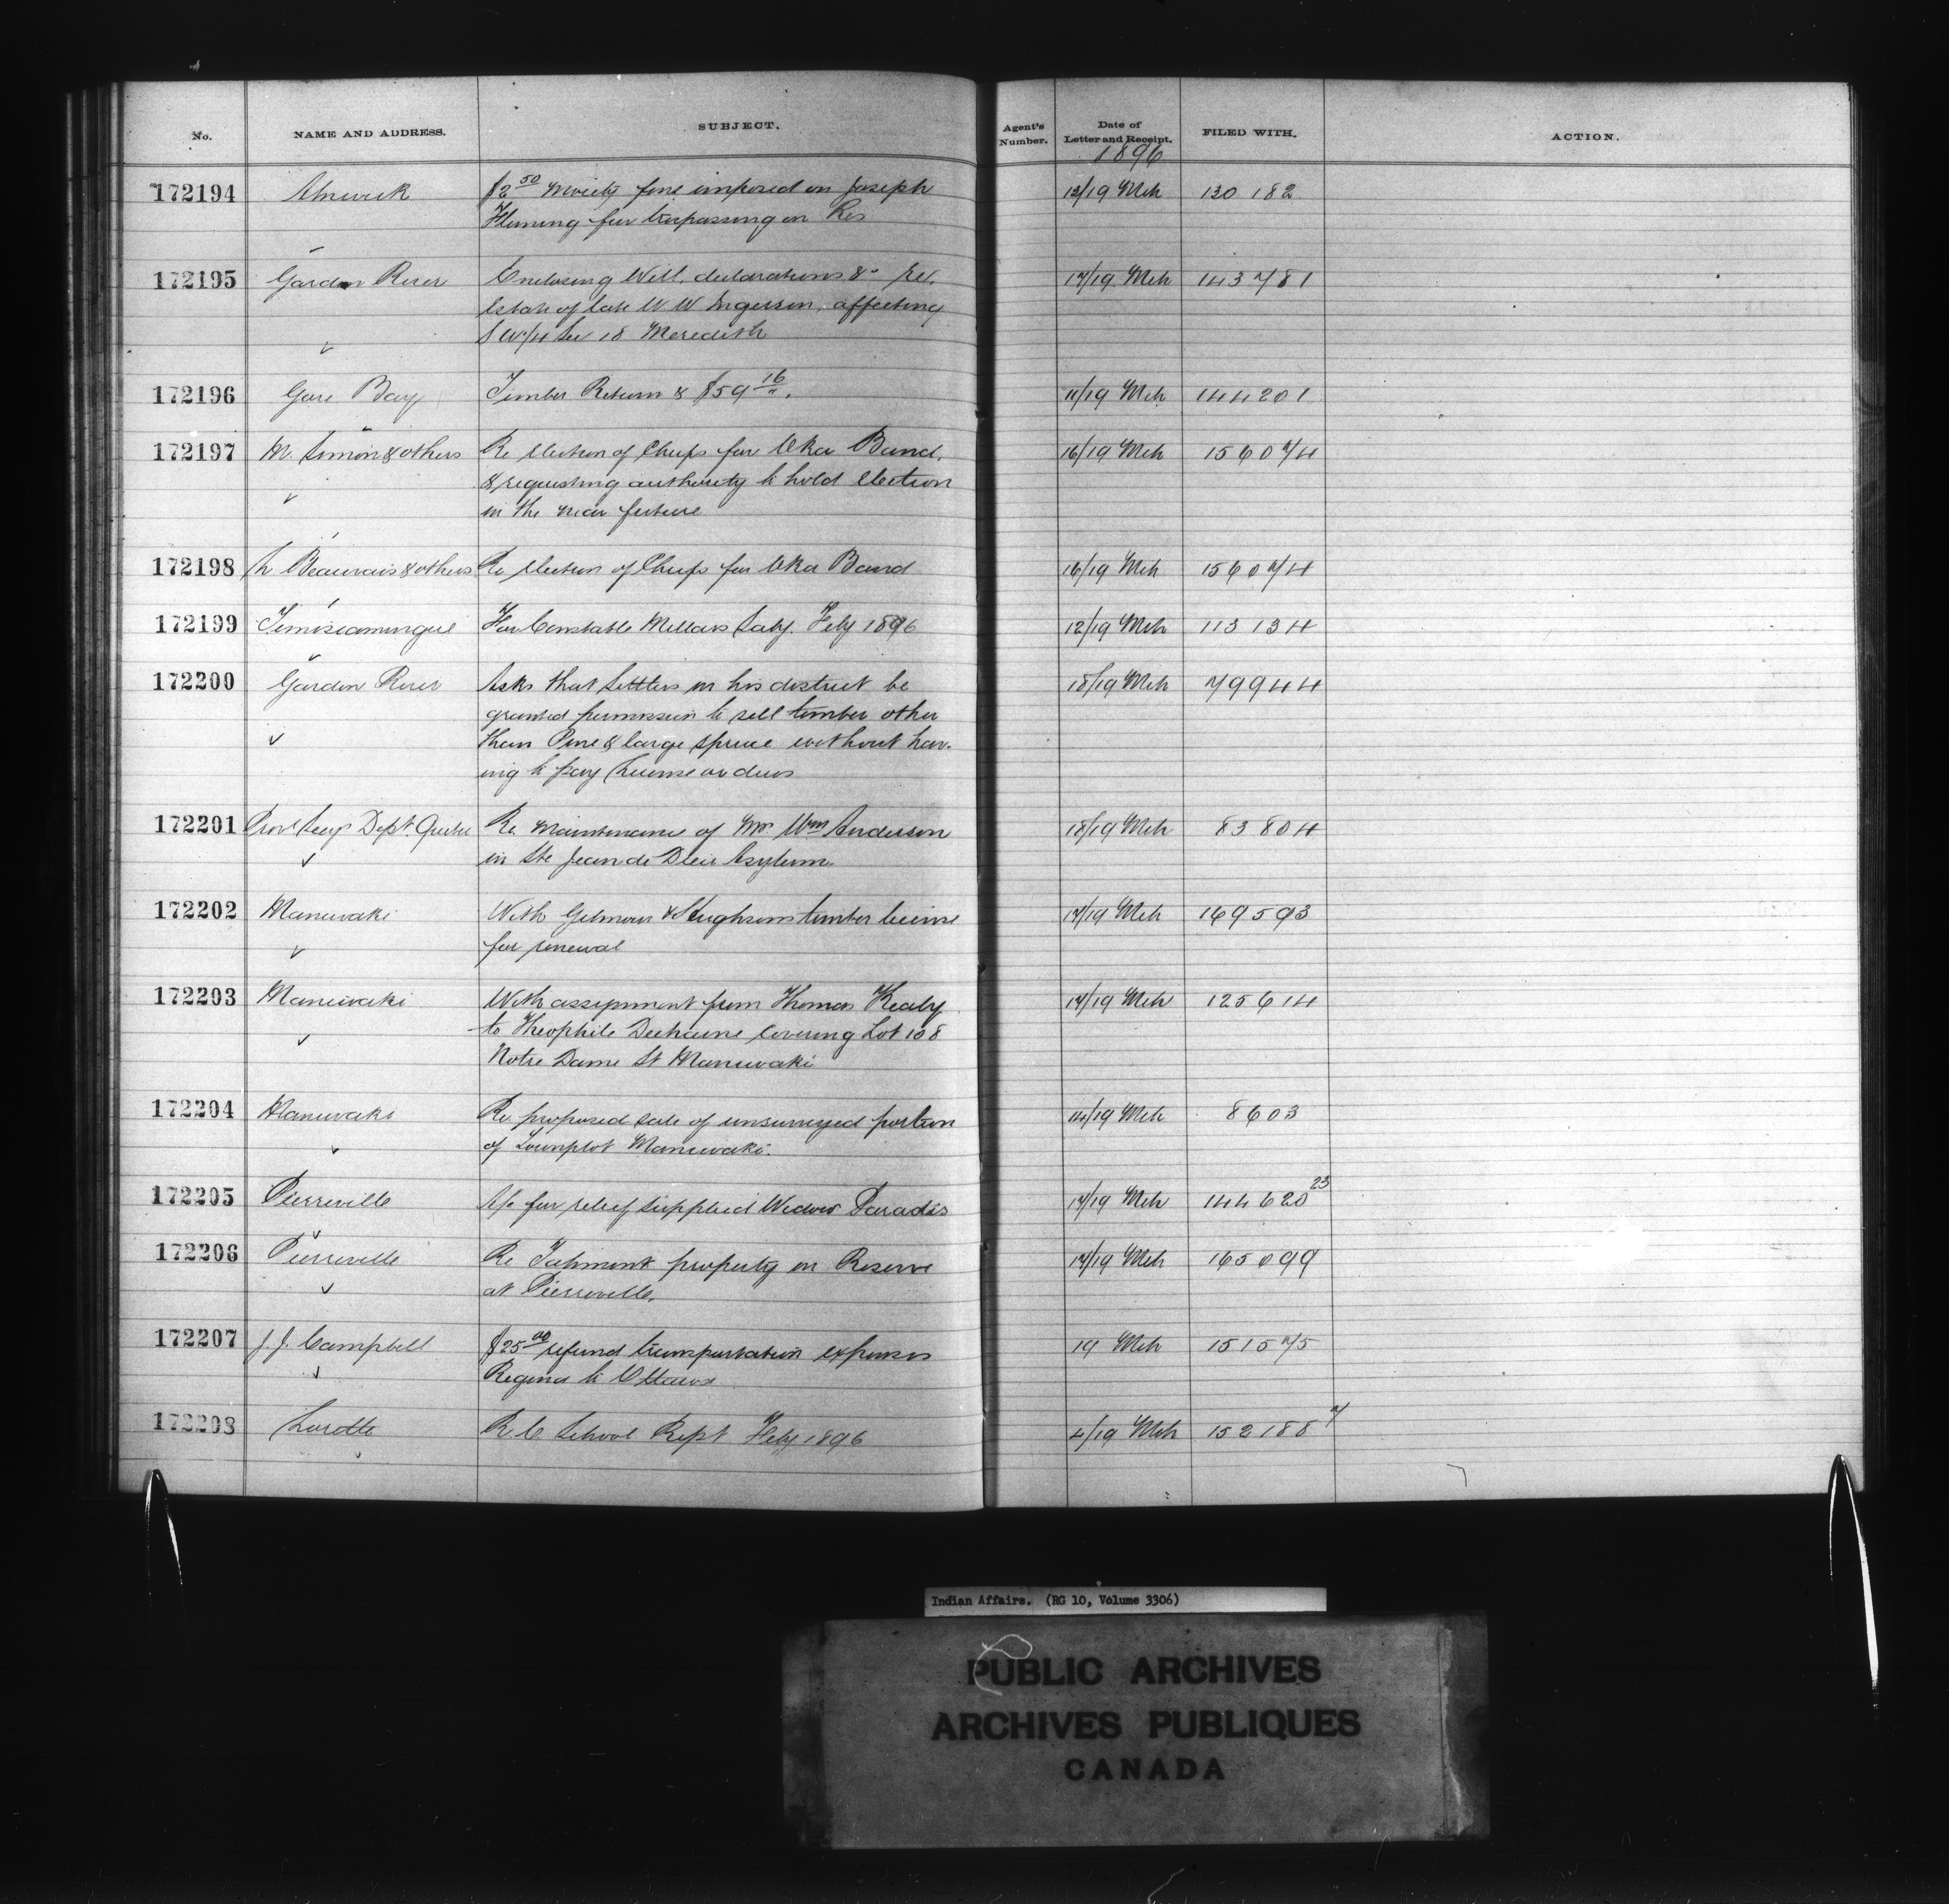 No. NAME AND ADDRESS. SUBJECT. Agent's Number. Date of Letter and Receipt. FILED WITH. ACTION.
1896
172194 Alnwick $2 50 Moiety fine imposed on Joseph 12/19 Mch 130 182
Fleming for trespassing on Res
172195 Garden River Enclosing Will, declarations &c re. 17/19 Mch 143781
Estate of late W W Ingerson, affecting
S W/4 Sec 18 Meredith
172196 Gore Bay Timber Return & $59 16 11/19 Mch 144201
172197 M. Simon & others Re election of Chiefs for Oka Band, 16/19 Mch 156074
& requesting authority to hold election
in the near future
172198 L Beauvais & others Re election of Chiefs for Oka Band 16/19 Mch 156074
172199 Temiscamingue For Constable Millars Saly. Feby 1896 12/19 Mch 113134
172200 Garden River Asks that Settlers in his district be 18/19 Mch 79944
granted permission to sell timber other
than Pine & large spruce without hav-
ing to pay License or dues
172201 Prov Secy Dept. Quebec Re Maintenance of Mr Wm Anderson 18/19 Mch 83804
in Ste Jean de Dieu Asylum
172202 Maniwaki With Gilmour & Hughsons timber license 17/19 Mch 169593
for renewal
172203 Maniwaki With assignment from Thomas Kealy 17/19 Mch 125614
to Theophile covering Lot 108
Notre Dame St Maniwaki
172204 Maniwaki Re proposed sale of unsurveyed portion 14/19 Mch 8603
of Townplot Maniwaki.
172205 Pierreville A/c for relief supplied Widow Paradis 17/19 Mch 144620 23
172206 Pierreville Re property on Reserve 17/19 Mch 165099
at Pierreville.
172207 J. J. Campbell $25 00 refund transportation expenses 19 Mch 151575
Regina to Ottawa
172208 Lorette R. C School Rept Feby 1896 4/19 Mch 152188 7
Indian Affairs. (RG 10, Volume 3306)
PUBLIC ARCHIVES
ARCHIVES PUBLIQUES
CANADA